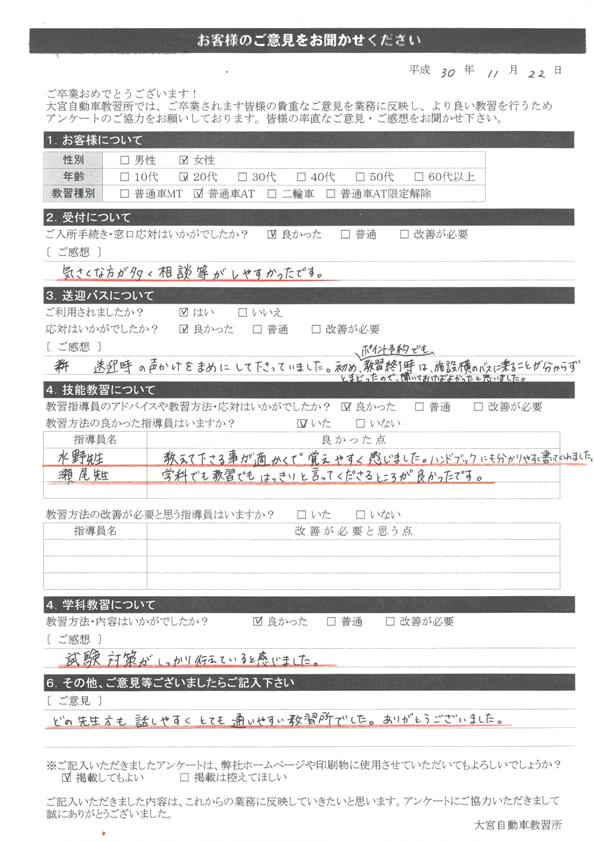 お客様のご意見をお聞かせください
平成 30 年 11 月 22 日
ご卒業おめでとうございます！
大宮自動車教習所では、ご卒業されます皆様の貴重なご意見を業務に反映し、より良い教習を行うため
アンケートのご協力をお願いしております。皆様の率直なご意見・ご感想をお聞かせ下さい。
1. お客様について
性別 □ 男性 ☑ 女性
年齢 □ 10代 ☑ 20代 □ 30代 □ 40代 □ 50代 □ 60代以上
教習種別 □ 普通車MT ☑ 普通車AT □ 二輪車 □ 普通車AT限定解除
2. 受付について
ご入所手続き・窓口応対はいかがでしたか？ ☑ 良かった □ 普通 □ 改善が必要
[ ご感想 ]
気さくな方が多く相談等がしやすかったです。
3. 送迎バスについて
ご利用されましたか？ ☑ はい □ いいえ
応対はいかがでしたか？ ☑ 良かった □ 普通 □ 改善が必要
[ ご感想 ]
ポイント予約でも
送迎時の声かけをまめにして下さっていました。初め、教習終了時は、施設横のバスに乗ることが分からず
とまどったので、聞いておけばよかったと思いました。
4. 技能教習について
教習指導員のアドバイスや教習方法・応対はいかがでしたか？ ☑ 良かった □ 普通 □ 改善が必要
教習方法の良かった指導員はいますか？ ☑ いた □ いない
指導員名 良かった点
水野先生 教えて下さる事が適かくで覚えやすく感じました。ハンドブックにも分かりやすく書いてくれました。
瀬尾先生 学科でも教習でもはっきりと言ってくださるところが良かったです。
教習方法の改善が必要と思う指導員はいますか？ □ いた □ いない
指導員名 改善が必要と思う点
4. 学科教習について
教習方法・内容はいかがでしたか？ ☑ 良かった □ 普通 □ 改善が必要
[ ご感想 ]
試験対策がしっかり行えていると感じました。
6. その他、ご意見等ございましたらご記入下さい
[ ご意見 ]
どの先生方も話しやすくとても通いやすい教習所でした。ありがとうございました。
※ご記入いただきましたアンケートは、弊社ホームページや印刷物に使用させていただいてもよろしいでしょうか？
☑ 掲載してもよい □ 掲載は控えてほしい
ご記入いただきました内容は、これからの業務に反映していきたいと思います。アンケートにご協力いただきまして
誠にありがとうございました。
大宮自動車教習所